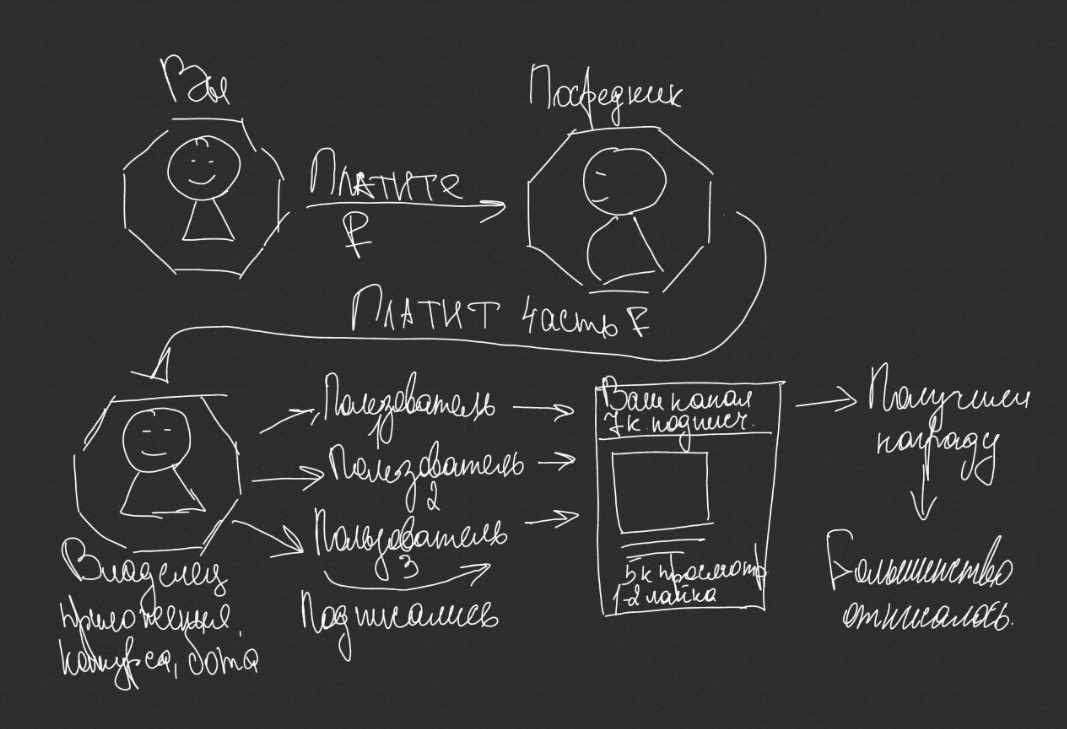 Вы
Посредник
Платите
₽
Платит часть ₽
Пользователь
1
Пользователь
2
Пользователь
3
Подписались
Владелец
приложения,
конкурса, бота
Ваш канал
7к подписч.
5к просмотр
1-2 лайка
Получили
награду
Большинство
отписалось.